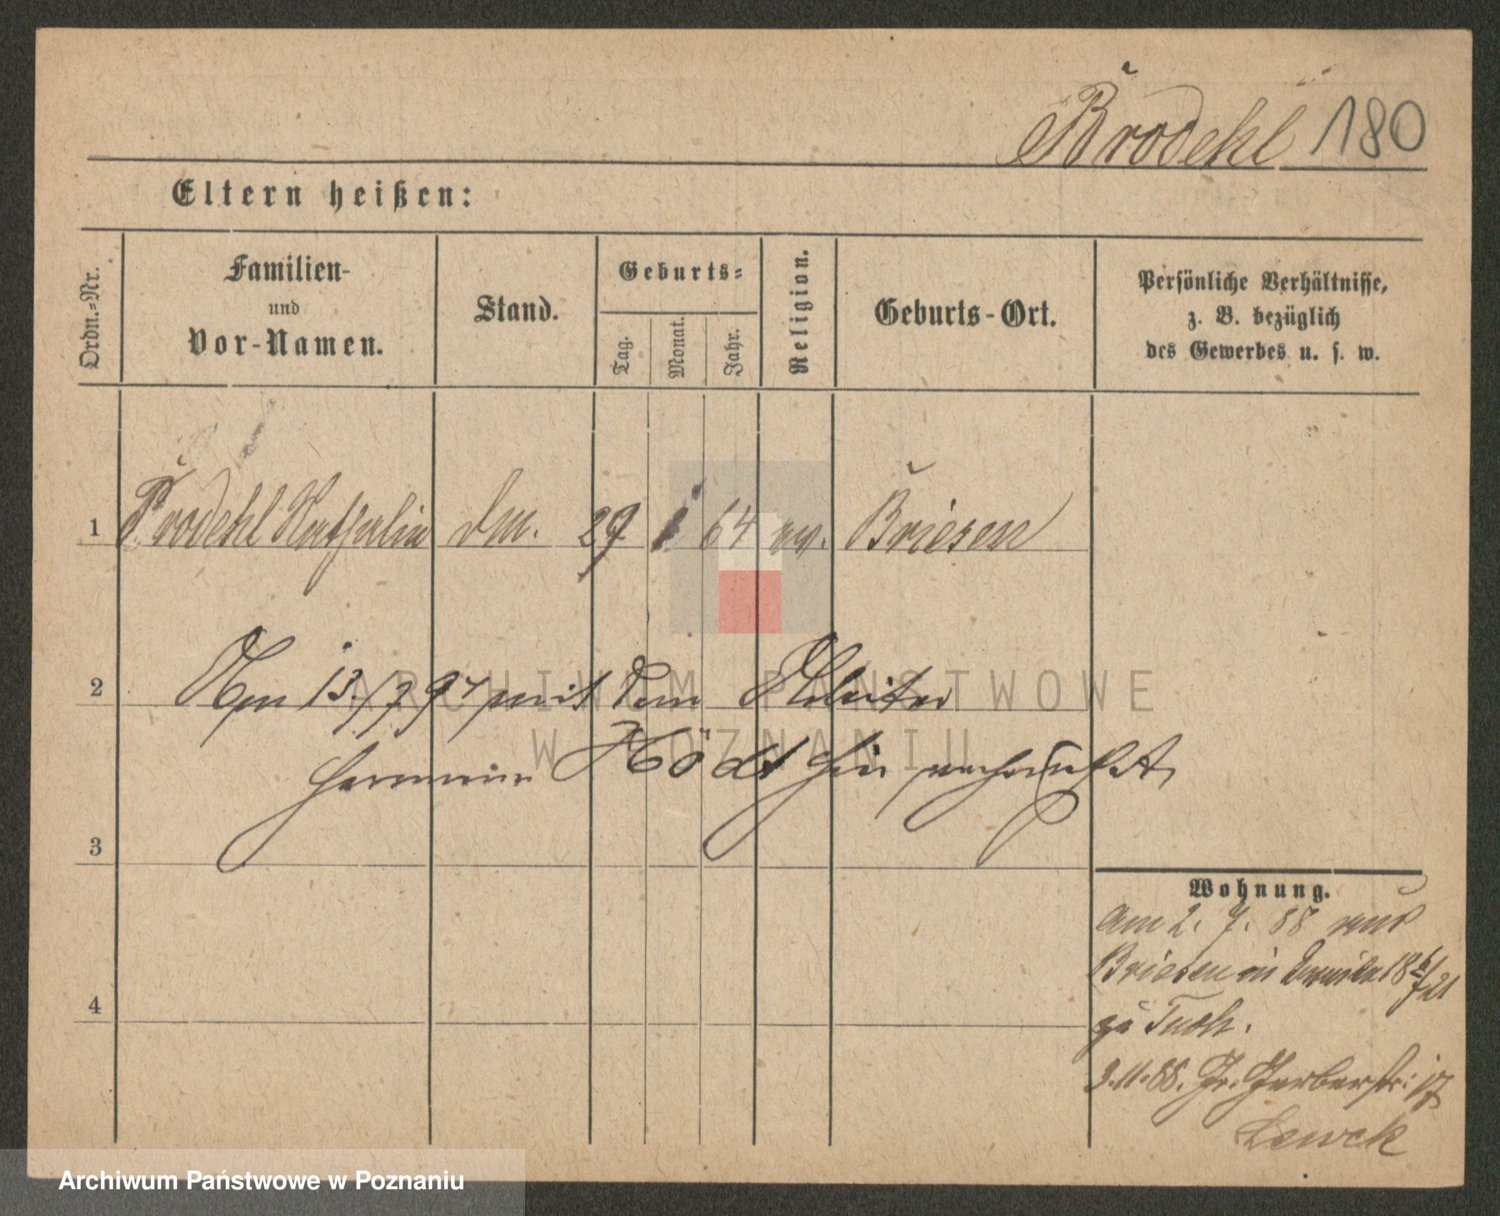 Brodehl 180
Eltern heißen:
Ordn.-Nr.
Familien-
und
Vor-Namen.
Stand.
Geburts-
Tag.
Monat.
Jahr.
Religion.
Geburts-Ort.
Persönliche Verhältnisse,
z. B. bezüglich
des Gewerbes u. s. w.
1 Brodehl Nathalia 29 64 ev. Briesen
2 Am 13./7 97 mit dem Arbeiter
Hermann Hödt hier verheirathet,
3
4
Wohnung.
am 2. 7. 88 aus
Briesen in
zu Tuch.
3.11.88. Gr. Gerberstr: 17
Lewek
ARCHIWUM PAŃSTWOWE
W POZNANIU
Archiwum Państwowe w Poznaniu